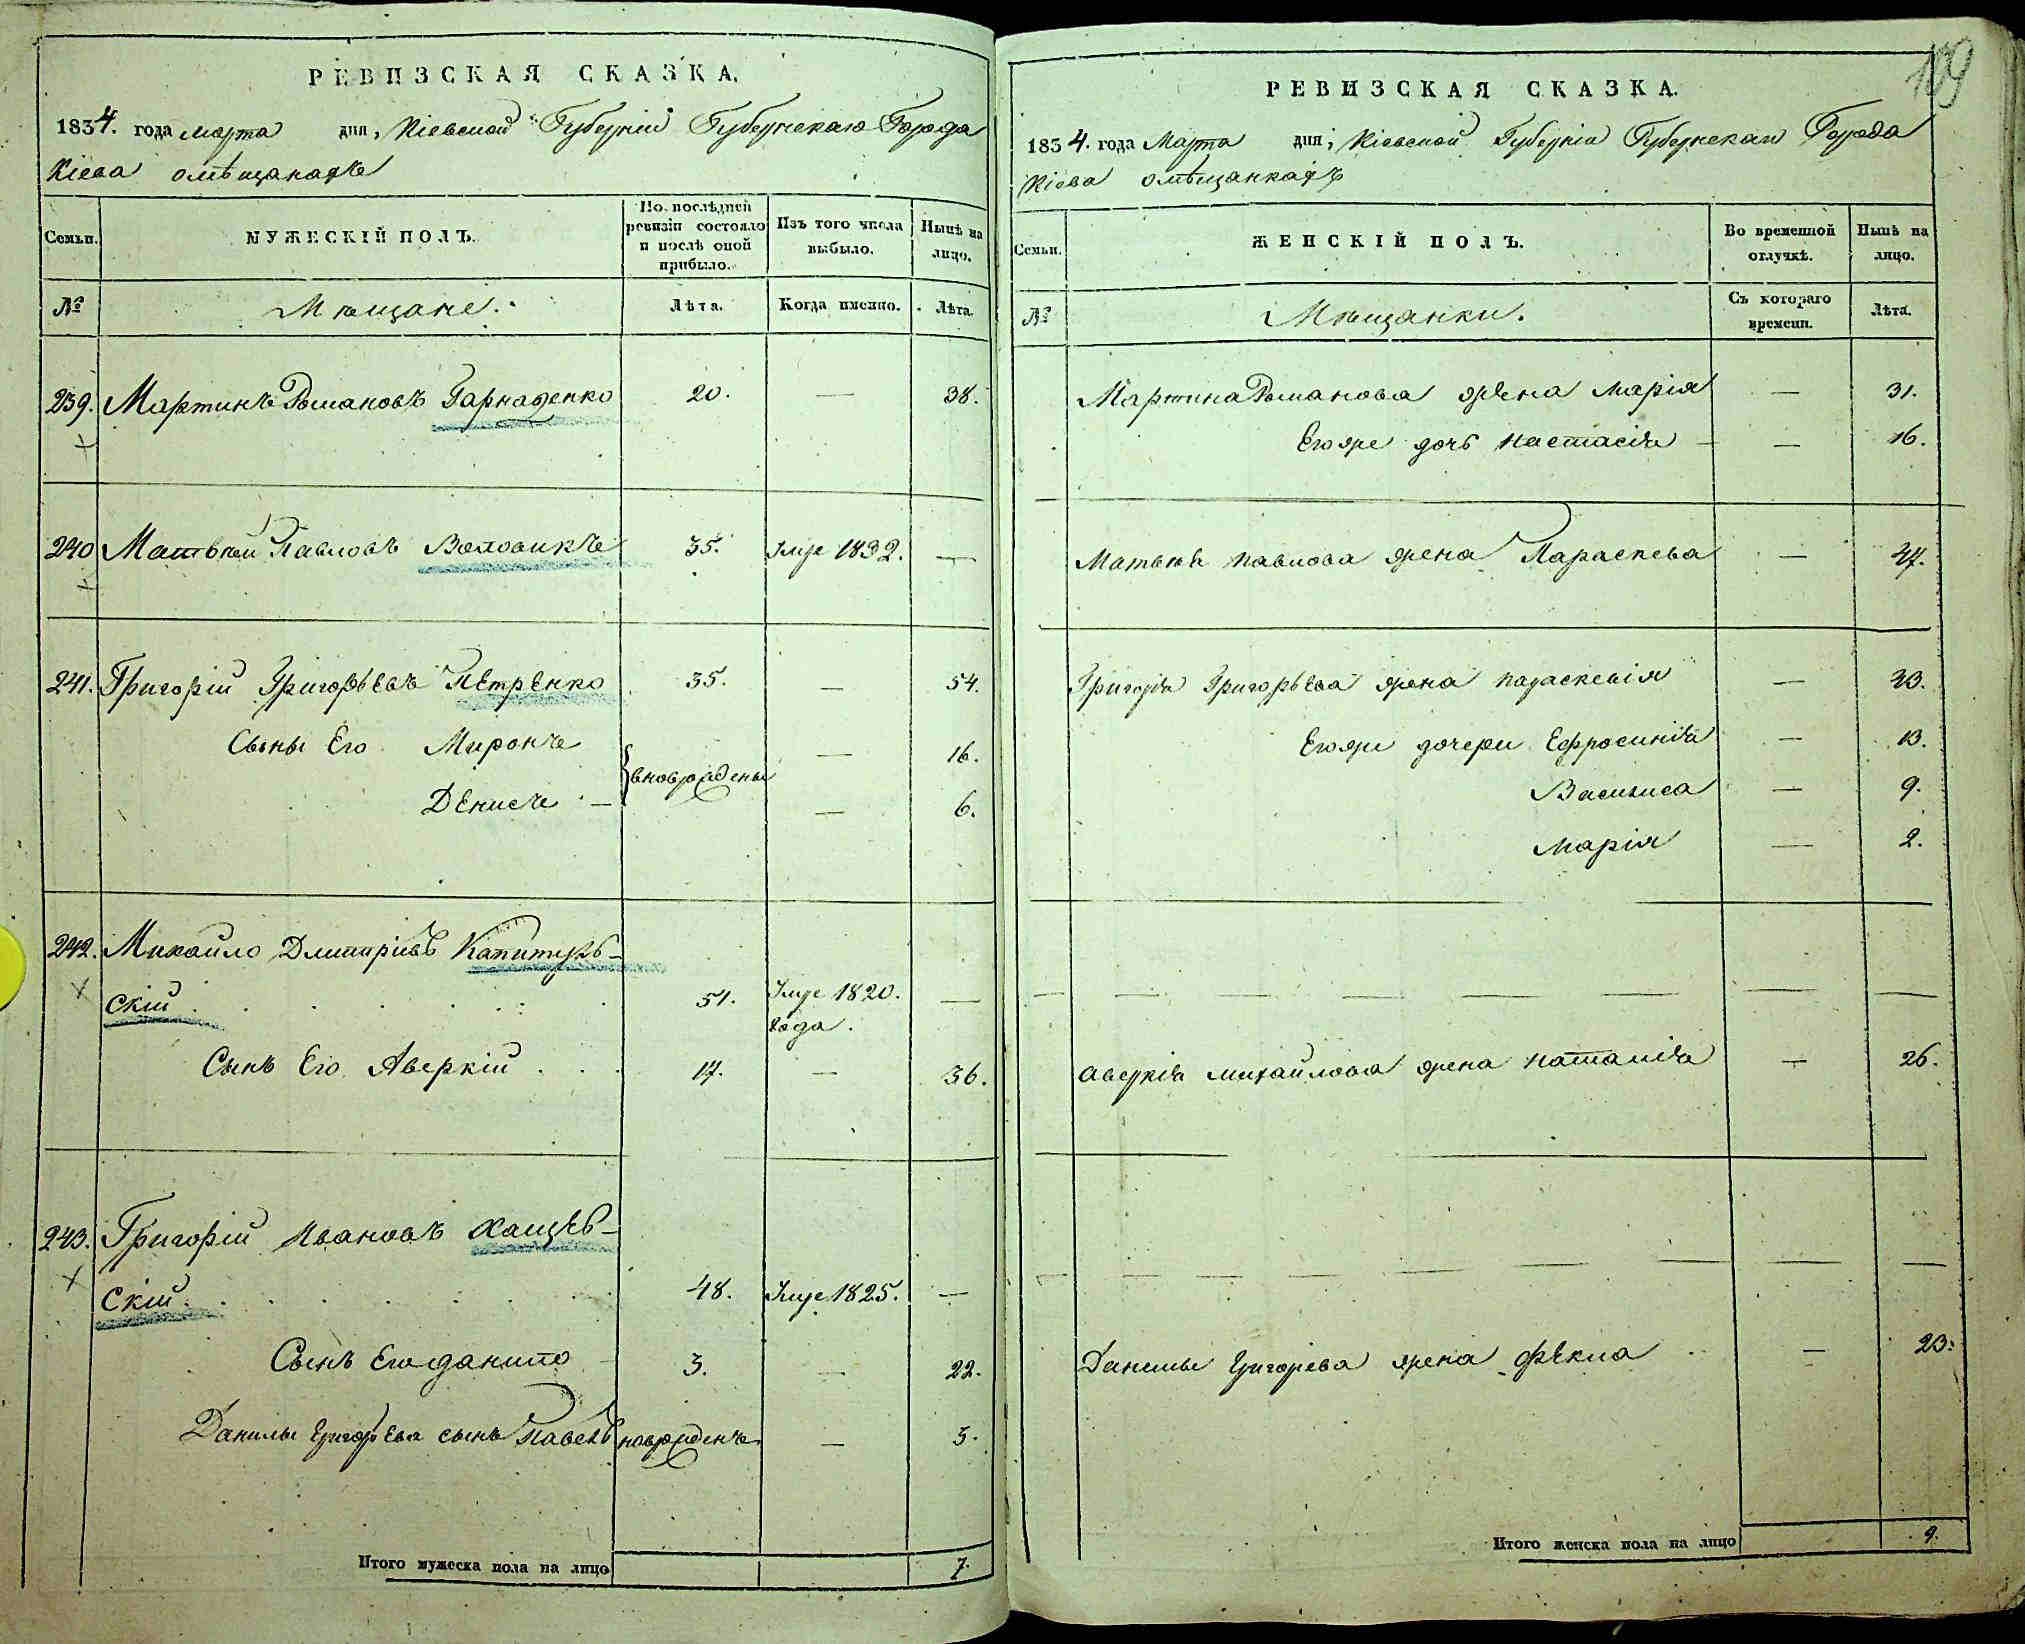 РЕВИЗСКАЯ СКАЗКА.
1834. года Марта дня, Кіевской Губерніи Губернскаго Города
Кіева о мѣщанахъ
Семьи.
МУЖЕСКІЙ ПОЛЪ.
По послѣдней ревизіи состояло и послѣ оной прибыло.
Изъ того числа выбыло.
Нынѣ на лицо.
№
Мѣщане.
Лѣта.
Когда именно.
Лѣта.
239. Мартинъ Романовъ Гарнаденко 20. — 38.
240 Матвѣй Павловъ Воловикъ 35. Умре 1832. —
241. Григорій Григорьевъ Петренко 35. — 54.
Сыны Его Миронъ — 16.
вноврождены
Денисъ — — 6.
242. Михайло Дмитріевъ
скій 51. Умре 1820. года. —
Сынъ Его Аверкій 17. — 36.
243. Григорій Ивановъ Хащев-
скій 48. Умре 1825. —
Сынъ Его Данило 3. — 22.
Данилы Григорьева сынъ Павелъ новорожденъ — 3.
Итого мужеска пола на лицо 7.
109
РЕВИЗСКАЯ СКАЗКА.
1834. года Марта дня, Кіевской Губерніи Губернскаго Города
Кіева о мѣщанкахъ
Семьи.
ЖЕНСКІЙ ПОЛЪ.
Во временной отлучкѣ.
Нынѣ на лицо.
№
Мѣщанки.
Съ котораго времени.
Лѣта.
Мартина Романова жена Марія — 31.
Его же дочь Настасія — — 16.
Матвѣя Павлова жена Параскева — 47.
Григорія Григорьева жена Параскевія — 33.
Его же дочери Ефросинія — 13.
Василиса — 9.
Марія — 2.
Аверкія Михайлова жена Наталія — 26.
Данилы Григорьева жена Фекла — 23.
Итого женска пола на лицо 9.